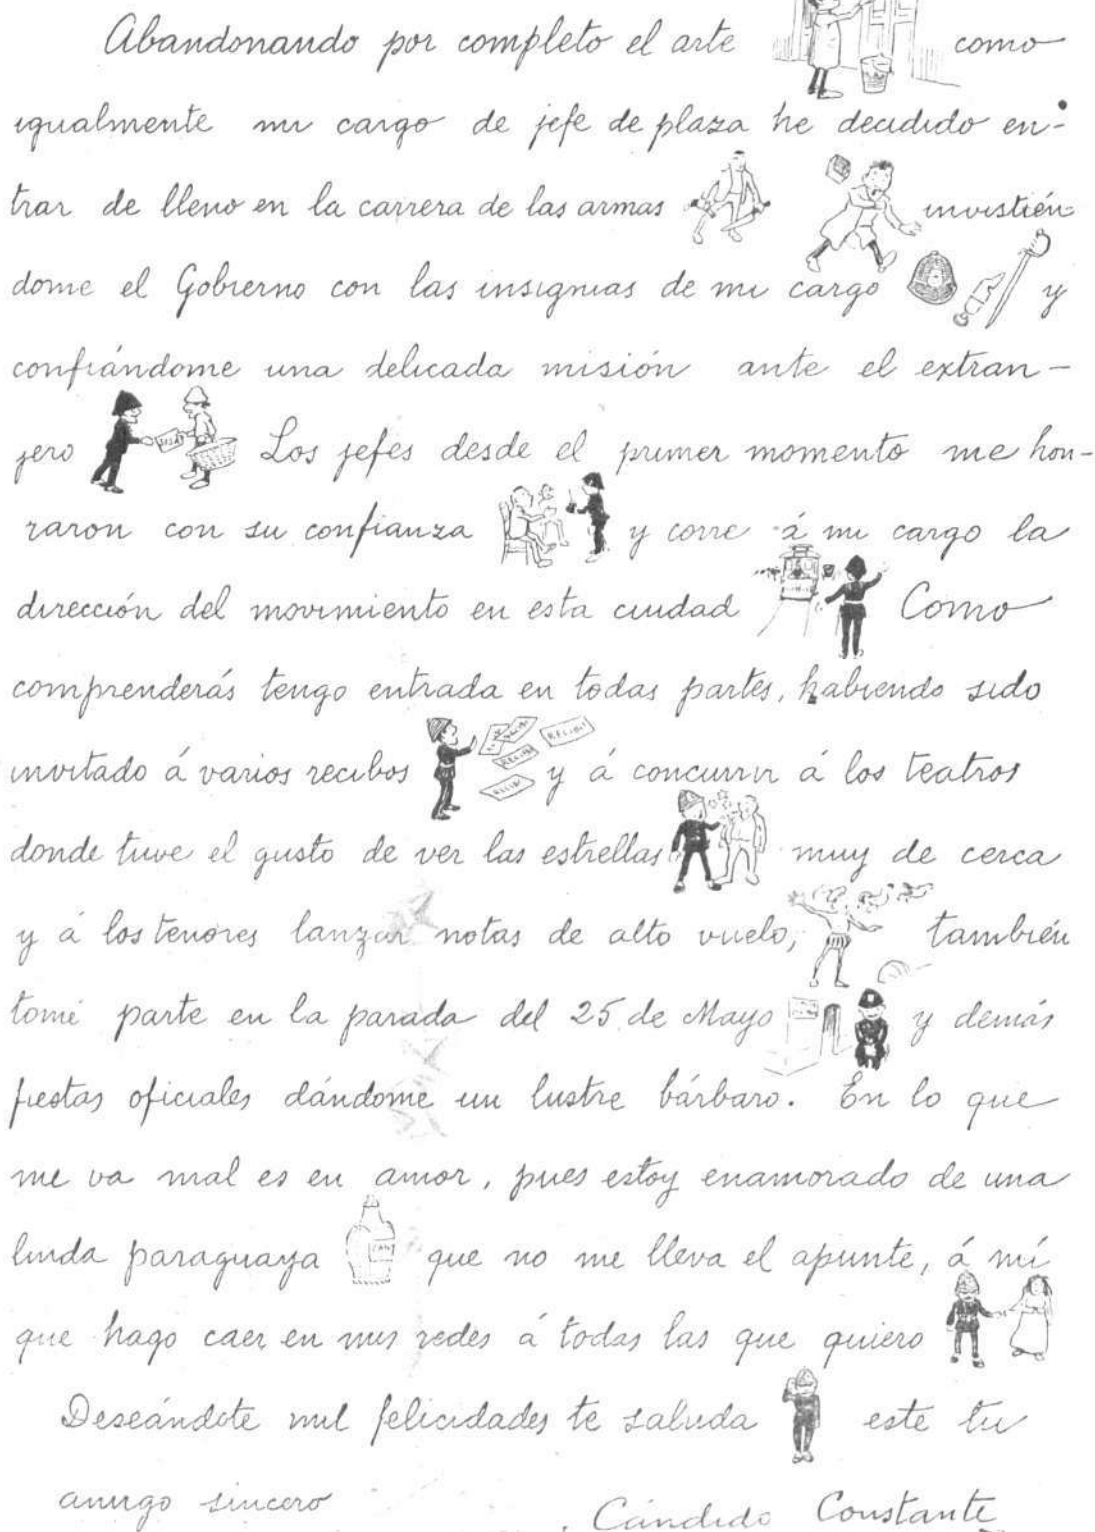 Abandonando por completo el arte como
igualmente mi cargo de jefe de plaza he decidido en-
trar de lleno en la carrera de las armas invistién
dome el Gobierno con las insignias de mi cargo y
confiándome una delicada misión ante el extran-
jero Los jefes desde el primer momento me hon-
raron con su confianza y corre á mi cargo la
dirección del movimiento en esta ciudad Como
comprenderás tengo entrada en todas partes, habiendo sido
invitado á varios recibos RECIBI RECIBI RECIBI y á concurrir á los teatros
donde tuve el gusto de ver las estrellas muy de cerca
y á los tenores lanzar notas de alto vuelo, también
tomé parte en la parada del 25 de Mayo y demás
fiestas oficiales dándome un lustre bárbaro. En lo que
me va mal es en amor, pues estoy enamorado de una
linda paraguaya que no me lleva el apunte, á mí
que hago caer en mis redes á todas las que quiero
Deseándote mil felicidades te saluda este tu
amigo sincero
Cándido Constante